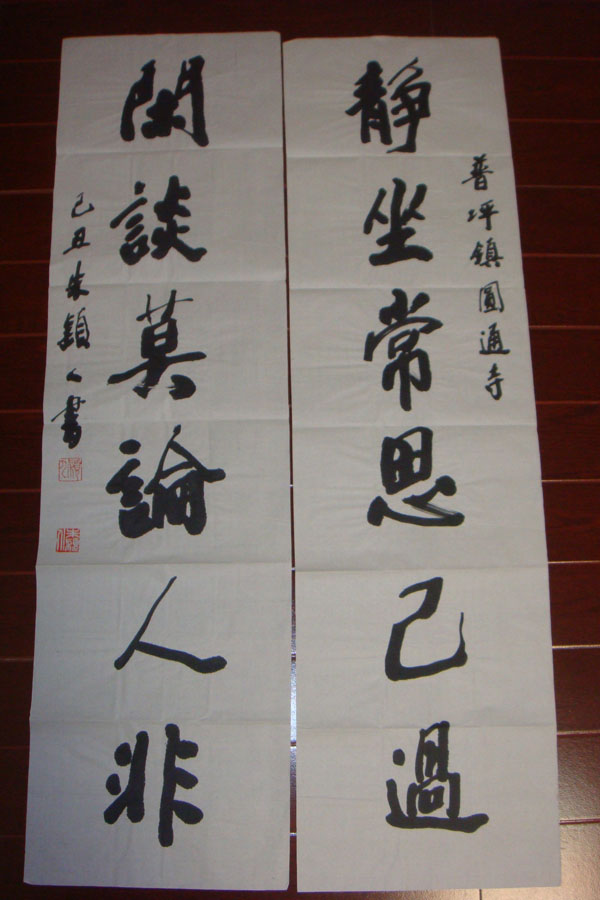 靜坐常思己過
普坪鎮圓通寺
閑談莫論人非
己丑朱穎人書